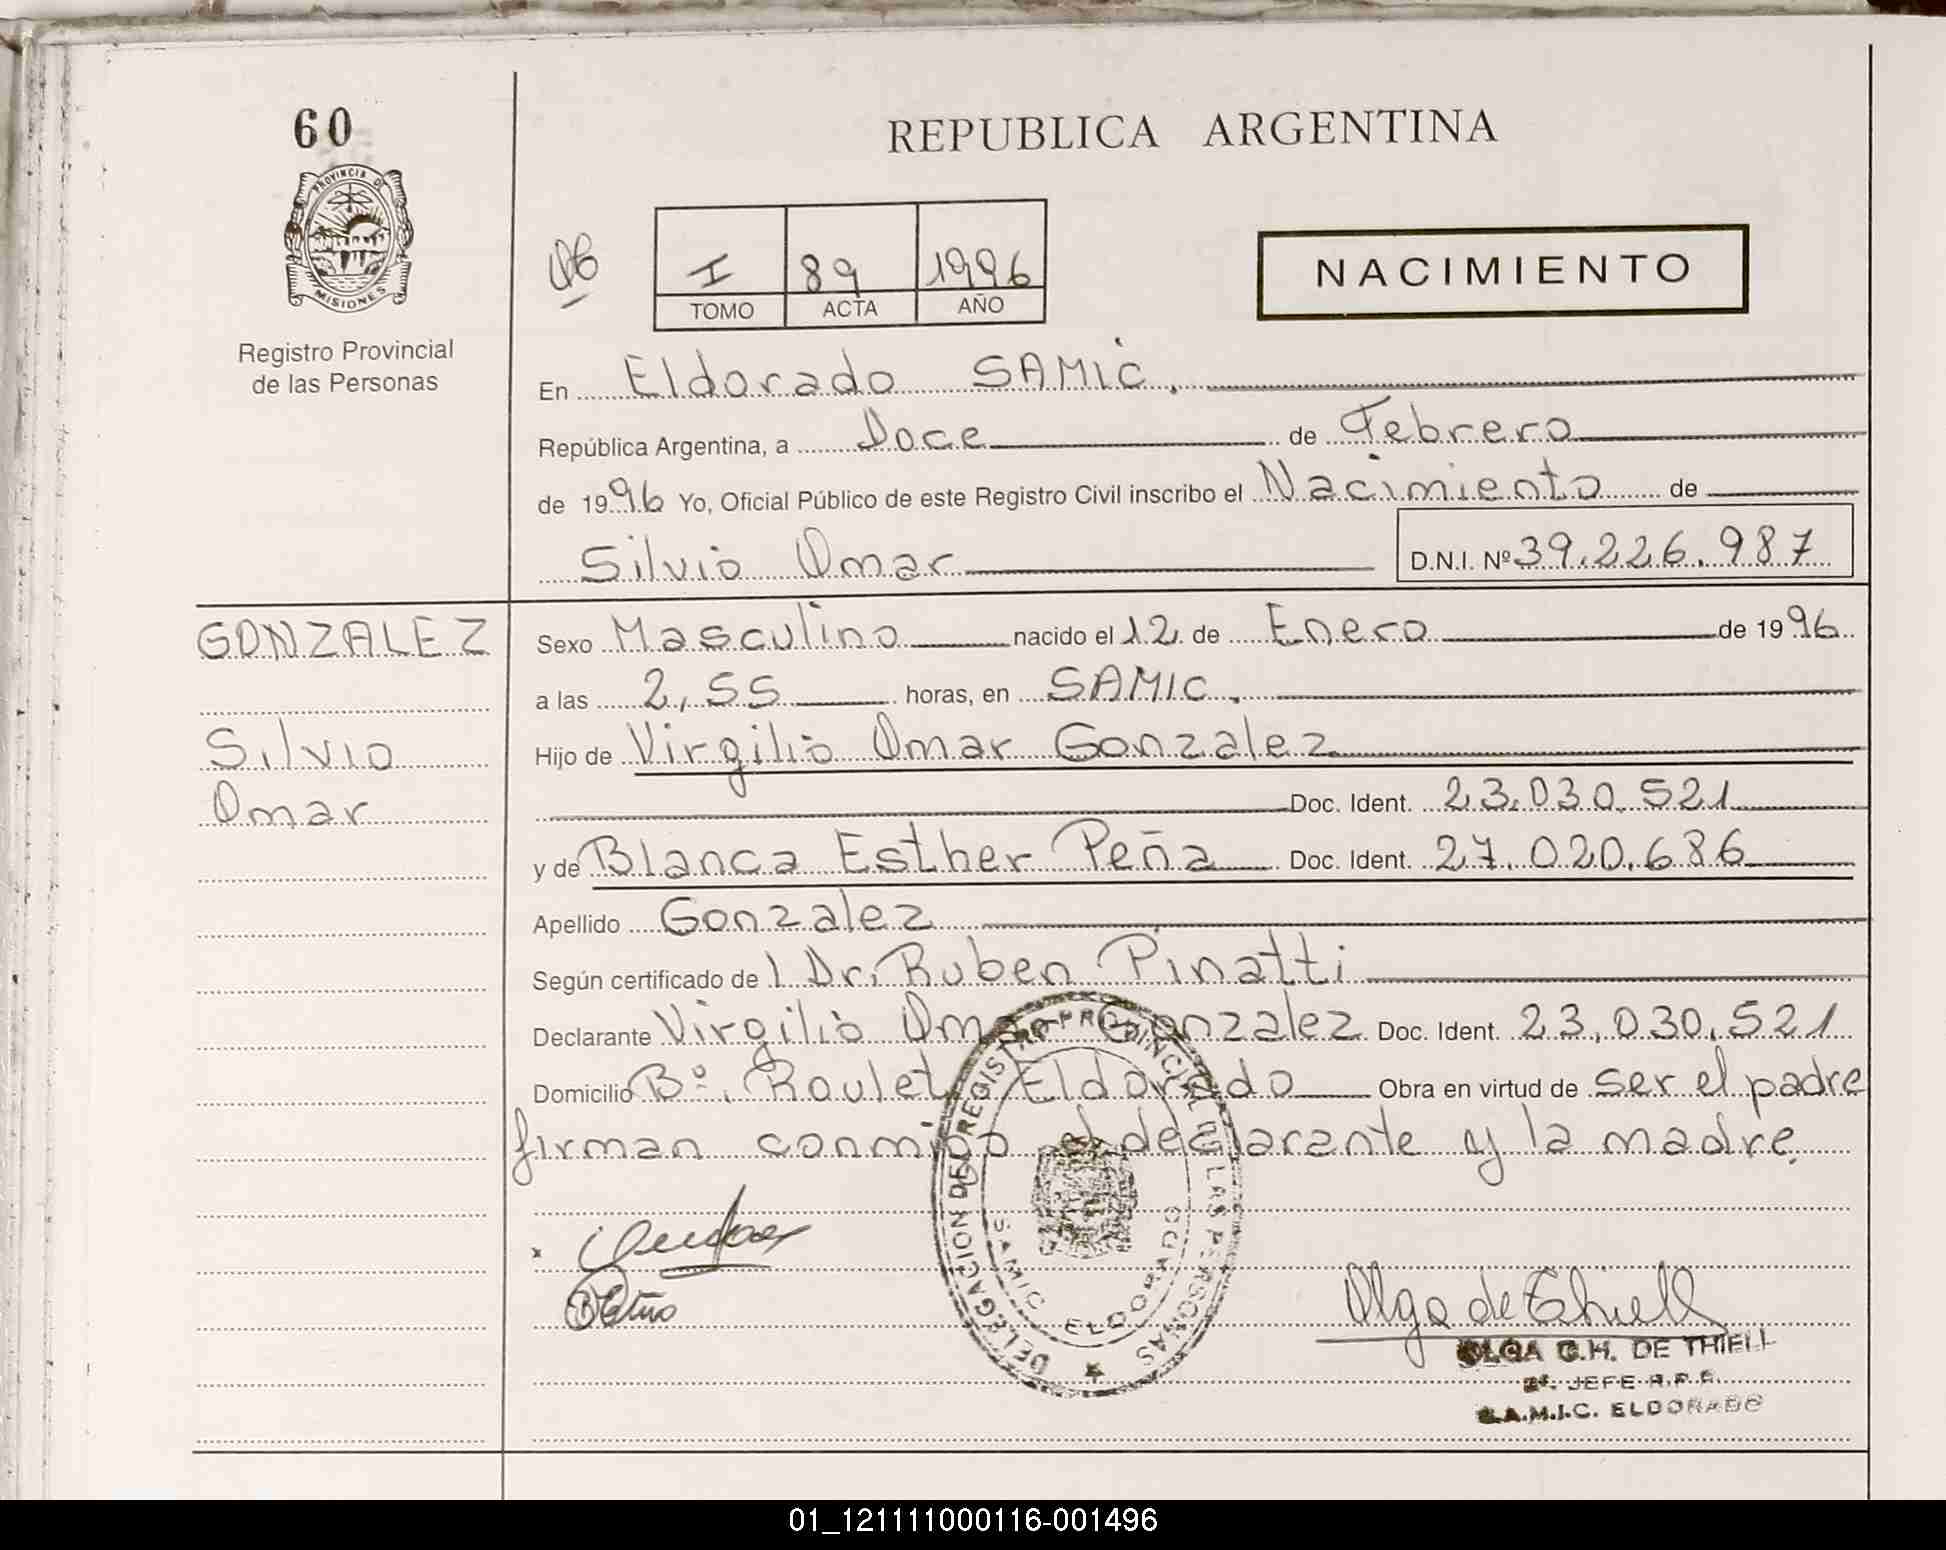 60
PROVINCIA DE
MISIONES
Registro Provincial
de las Personas
REPUBLICA ARGENTINA
I 89 1996
TOMO ACTA AÑO
NACIMIENTO
En Eldorado SAMIC.
República Argentina, a Doce de Febrero
de 1996 Yo, Oficial Público de este Registro Civil inscribo el Nacimiento de
Silvio Omar D.N.I. Nº 39.226.987
GONZALEZ
Silvio
Omar
Sexo Masculino nacido el 12 de Enero de 1996
a las 2,55 horas, en SAMIC.
Hijo de Virgilio Omar Gonzalez
Doc. Ident. 23.030.521
y de Blanca Esther Peña Doc. Ident. 27.020.686
Apellido Gonzalez
Según certificado de l Dr. Ruben Pinatti
Declarante Virgilio Omar Gonzalez Doc. Ident. 23.030.521
Domicilio Bº. Roulet Eldorado Obra en virtud de ser el padre
firman conmigo el declarante y la madre.
DELEGACION DEL REGISTRO PROVINCIAL DE LAS PERSONAS
SAMIC ELDORADO
Olga de Thiell
OLGA C.H. DE THIELL
2º. JEFE R.P.P.
S.A.M.I.C. ELDORADO
01_121111000116-001496